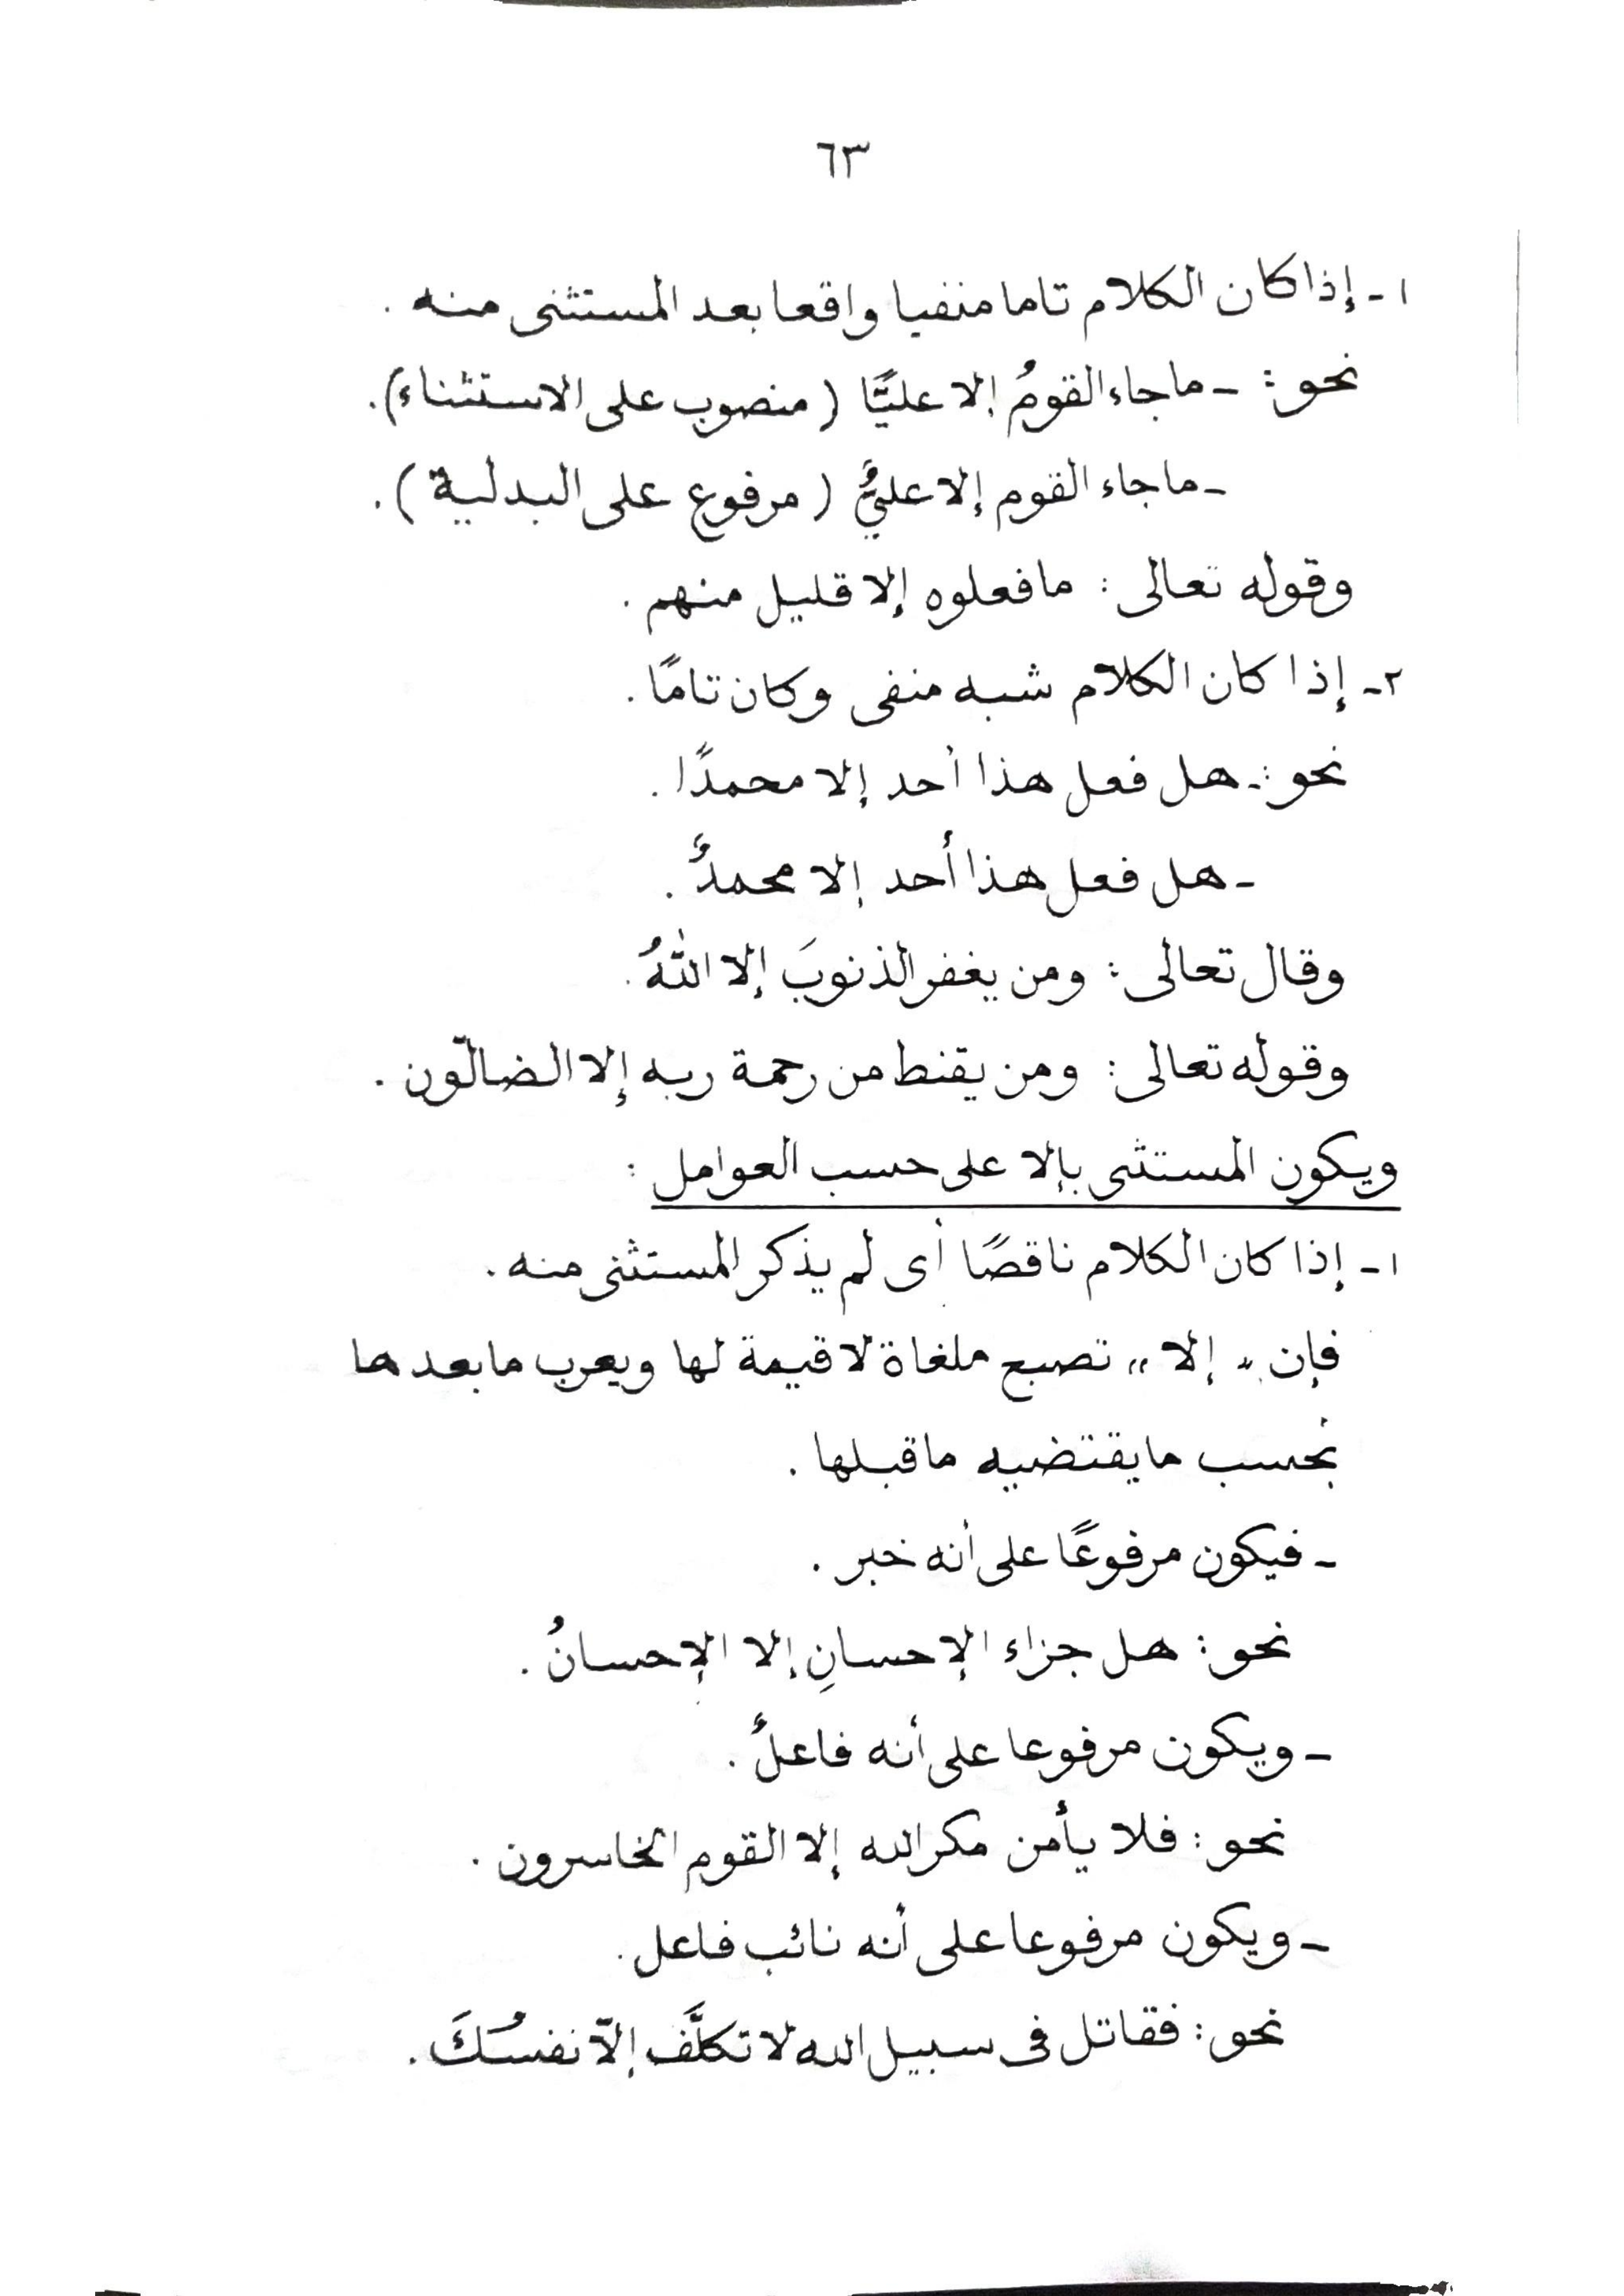 ٦٣
١ - إذا كان الكلام تاما منفيا واقعا بعد المستثنى منه .
نحو : - ما جاء القومُ إلا عليًّا ( منصوب على الاستثناء ) .
- ما جاء القوم إلا عليٌّ ( مرفوع على البدلية ) .
وقوله تعالى : ما فعلوه إلا قليل منهم .
٢ - إذا كان الكلام شبه منفى وكان تامًا .
نحو : - هل فعل هذا أحد إلا محمدًا .
- هل فعل هذا أحد إلا محمدٌ .
وقال تعالى : ومن يغفر الذنوبَ إلا اللهُ .
وقوله تعالى : ومن يقنط من رحمة ربه إلا الضالّون .
ويكون المستثنى بإلا على حسب العوامل :
١ - إذا كان الكلام ناقصًا أى لم يذكر المستثنى منه .
فإن " إلا " تصبح ملغاة لا قيمة لها ويعرب ما بعدها
بحسب ما يقتضيه ما قبلها .
- فيكون مرفوعًا على أنه خبر .
نحو : هل جزاء الإحسانِ إلا الإحسانُ .
- ويكون مرفوعا على أنه فاعلٌ .
نحو : فلا يأمن مكر الله إلا القوم الخاسرون .
- ويكون مرفوعا على أنه نائب فاعل .
نحو : فقاتل فى سبيل الله لا تكلَّف إلاّ نفسُكَ .